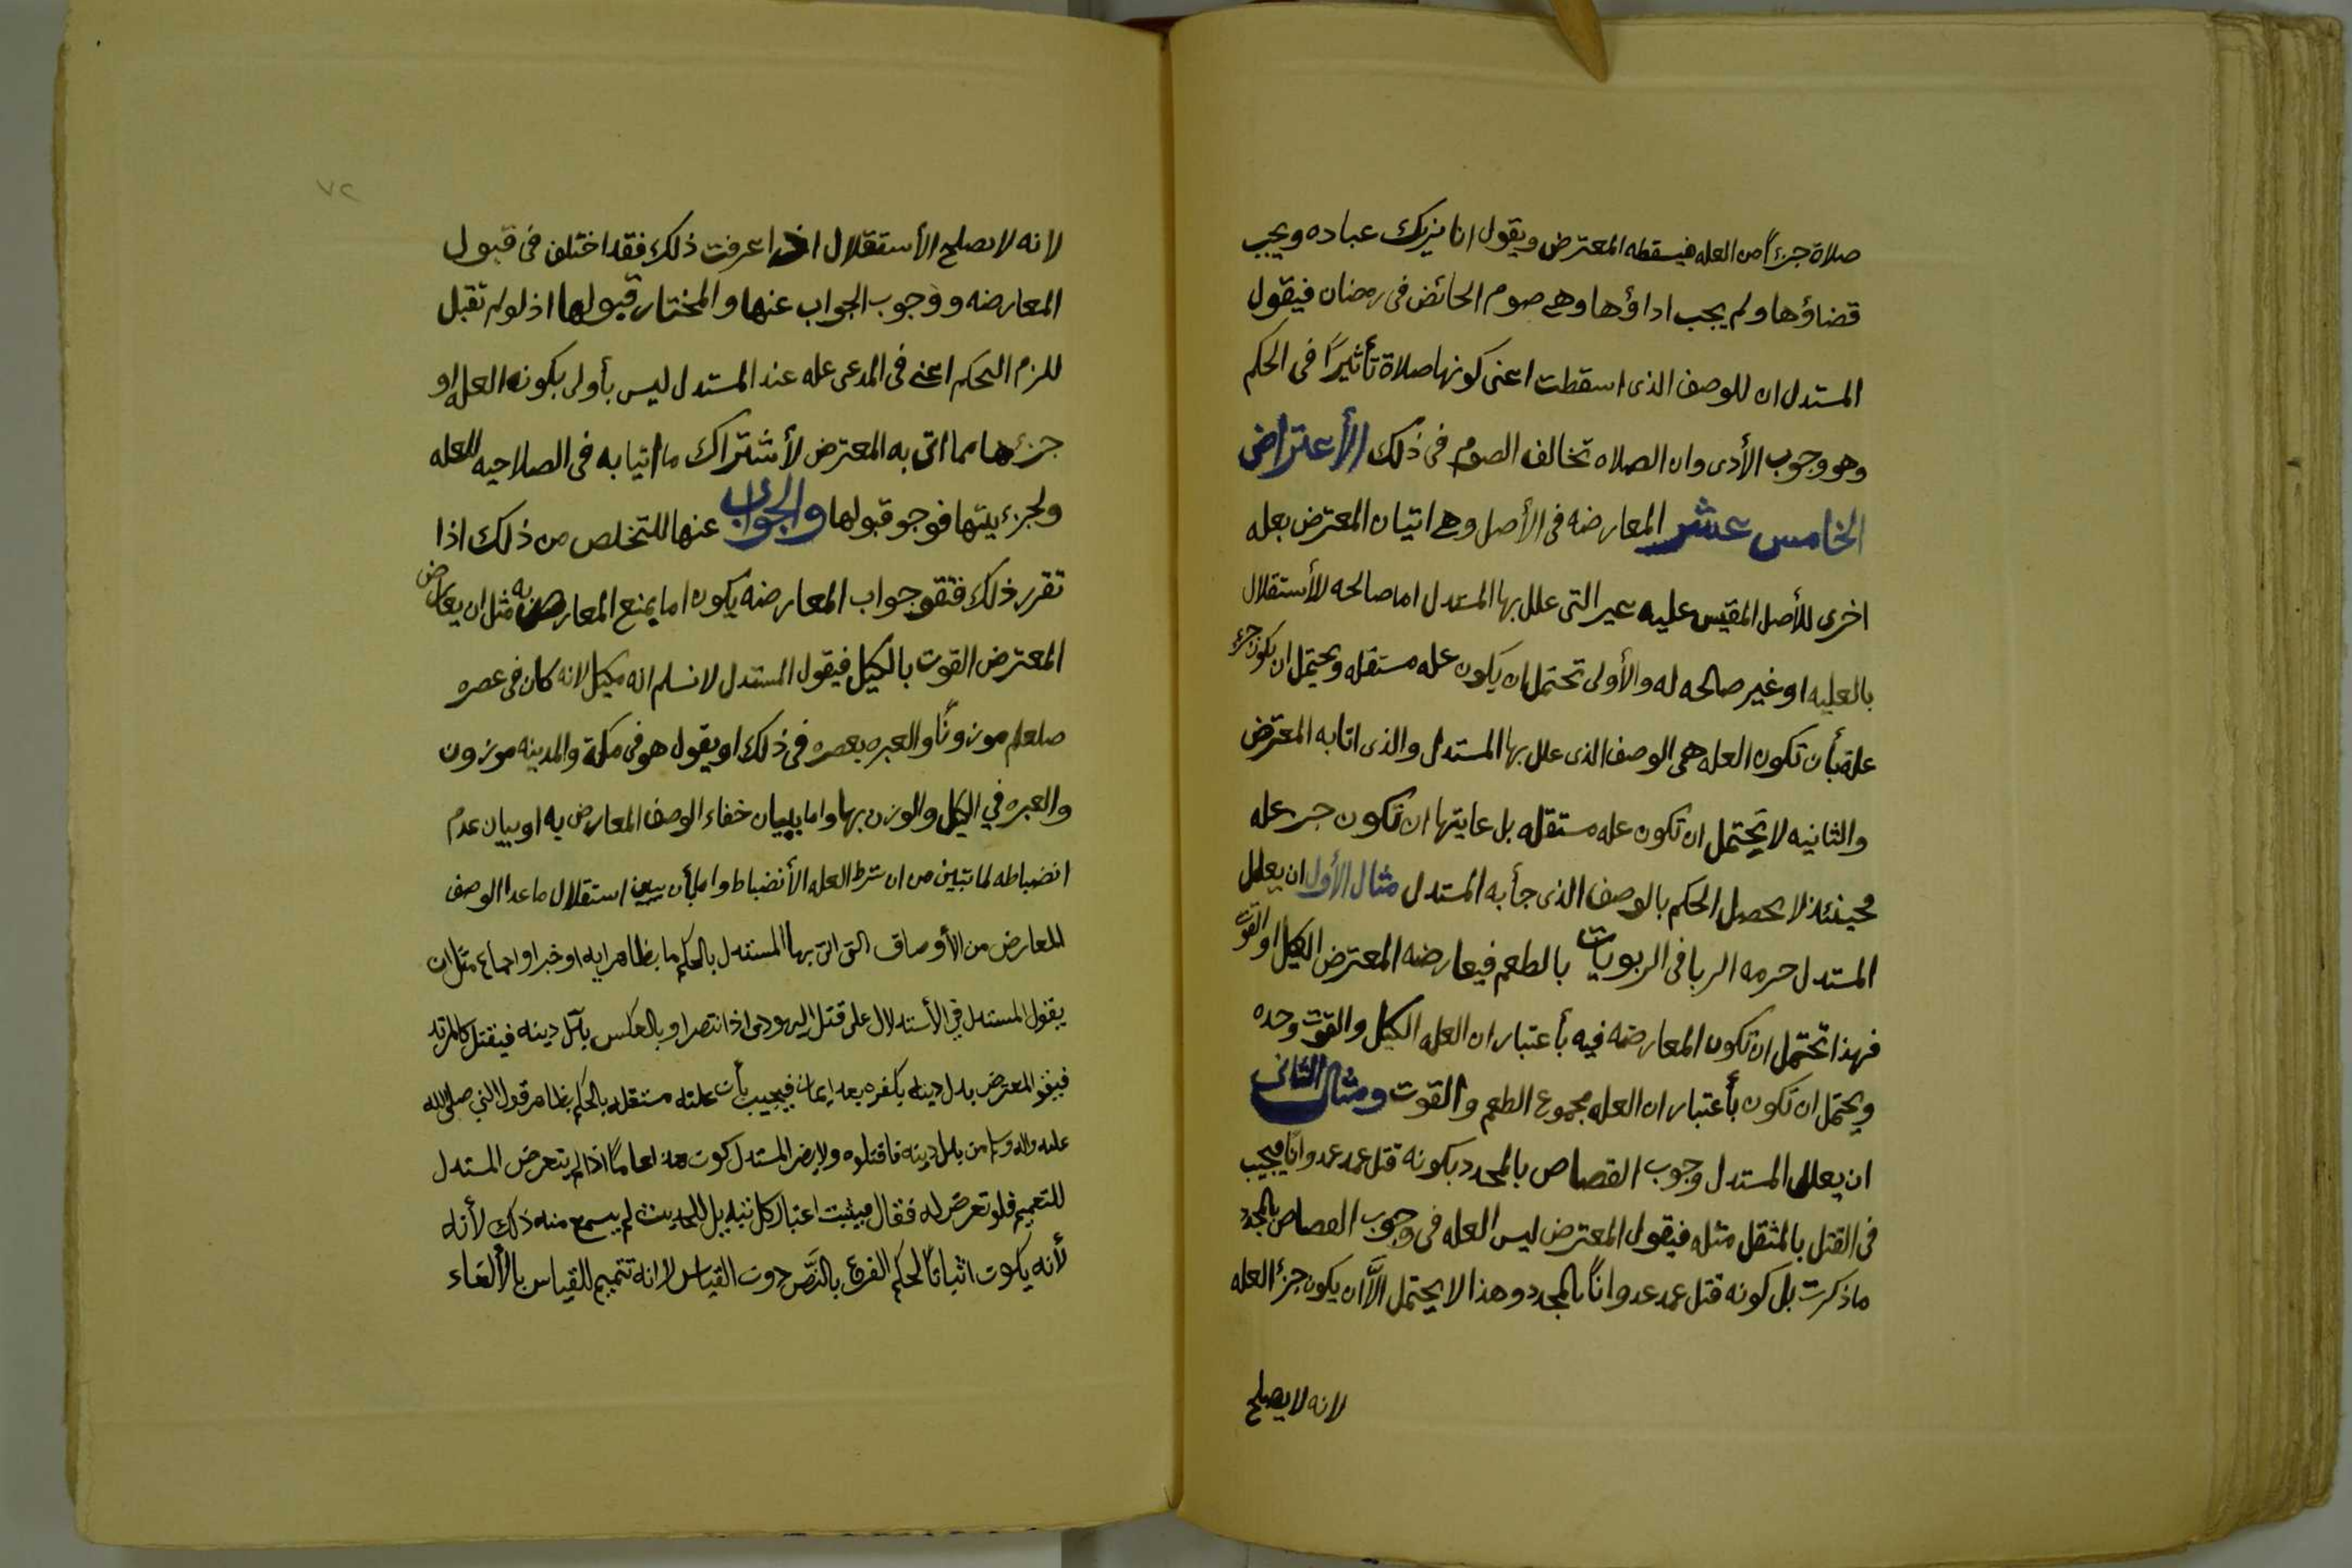 صلاة جزءًا من العله فيسقطه المعترض ويقول انا نريك عباده ويجب
قضاؤها ولم يجب اداؤها وهي صوم الحائض فى رمضان فيقول
المستدل ان للوصف الذى اسقطت اعنى كونها صلاة تأثيرًا فى الحكم
وهو وجوب الأدى وان الصلاه تخالف الصوم فى ذلك الأعتراض
الخامس عشر المعارضه فى الأصل وهي اتيان المعترض بعله
اخرى للأصل المقيس عليه غير التى علل بها المستدل اما صالحه للأستقلال
بالعليه او غير صالحه له والأولى تحتمل ان يكون عله مستقله ويحتمل ان يكون جزء
علة بأن تكون العله هى الوصف الذى علل بها المستدل والذى اتا به المعترض
والثانيه لا يحتمل ان تكون عله مستقله بل غايتها ان تكون جزء عله
فحينئذ لا يحصل الحكم بالوصف الذى جأ به المستدل مثال الأول ان يعلل
المستدل حرمه الربا فى الربويات بالطعم فيعارضه المعترض الكيل او القوت
فهذا تحتمل ان تكون المعارضه فيه بأعتبار ان العله الكيل والقوت وحده
ويحتمل ان تكون بأعتبار ان العله مجموع الطعم والقوت ومثال الثانى
ان يعلل المستدل وجوب القصاص بالمحدد بكونه قتل عمد عدوانًا فيجب
فى القتل بالمثقل مثله فيقول المعترض ليس العله فى وجوب القصاص بالمحدد
ماذكرت بل كونه قتل عمد عدوانًا بالمحدد وهذا لا يحتمل الاَّ ان يكون جزء العله
لانه لا يصلح
٧٢
لانه لا يصلح الأستقلال اذا عرفت ذلك فقد اختلف فى قبول
المعارضه ووجوب الجواب عنها والمختار قبولها اذ لو لم تقبل
للزم التحكم اعنى فى المدعى عله عند المستدل ليس بأولى بكونه العله او
جزءها مما اتى به المعترض لأشتراك ما اتيا به فى الصلاحيه للعله
ولجزئيتها فوجو قبولها والجواب عنها للتخلص من ذلك اذا
تقرر ذلك فنقو جواب المعارضه يكون اما بمنع المعارض به مثل ان يعارض
المعترض القوت بالكيل فيقول المستدل لا نسلم انه مكيل لانه كان فى عصره
صلعلم موزونًا والعبره بعصره فى ذلك او يقول هو فى مكة والمدينه موزون
والعبره في الكيل والوزن بها واما ببيان خفاء الوصف المعارض به او ببيان عدم
انضباطه لما تبين من ان شرط العله الأنضباط واما بأن يبين استقلال ما عدا الوصف
المعارض من الأوصاف التى اتى بها المستدل بالحكم ما بظاهر ايه او خبر او اجماع مثل ان
يقول المستدل في الأستدلال على قتل اليهودى اذا تنصر او بالعكس بدّل دينه فيقتل كالمرتد
فيقو المعترض بدل دينه بكفره بعد ايمان فيجيب بأن علته مستقله بالحكم بظاهر قول النبي صلى الله
عليه واله وسلم من بدل دينه فاقتلوه ولا يضر المستدل كون هذا عامًا اذا لم يتعرض المستدل
للتعميم فلو تعرض له فقال فيثبت اعتبار كل تبديل للحديث لم يسمع منه ذلك لأنه
لأنه يكون اثباتًا لحكم الفرع بالنَّص دون القياس لا انه تتميم للقياس بالألغاء